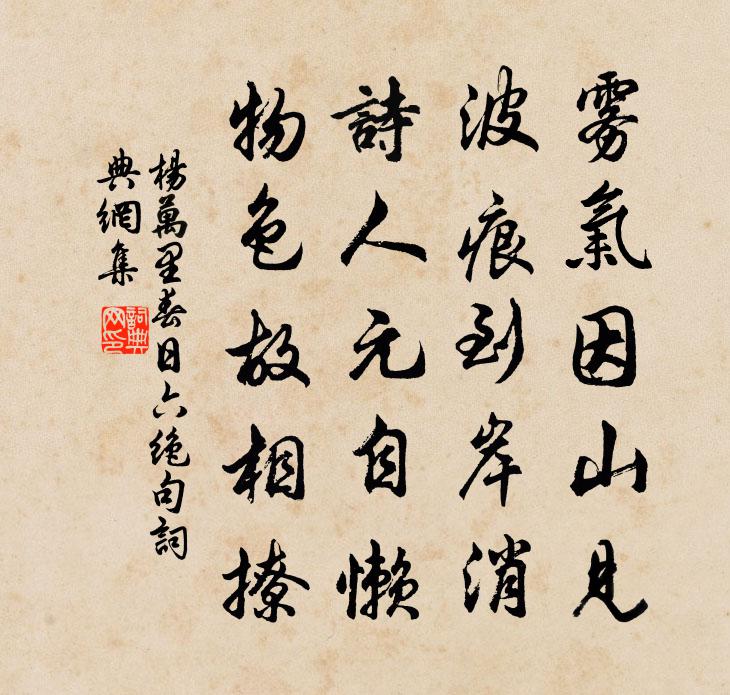 雾氣因山見
波痕到岸消
詩人元自懶
物色故相撩
楊萬里春日六絶句詞
典網集
詞典
网印